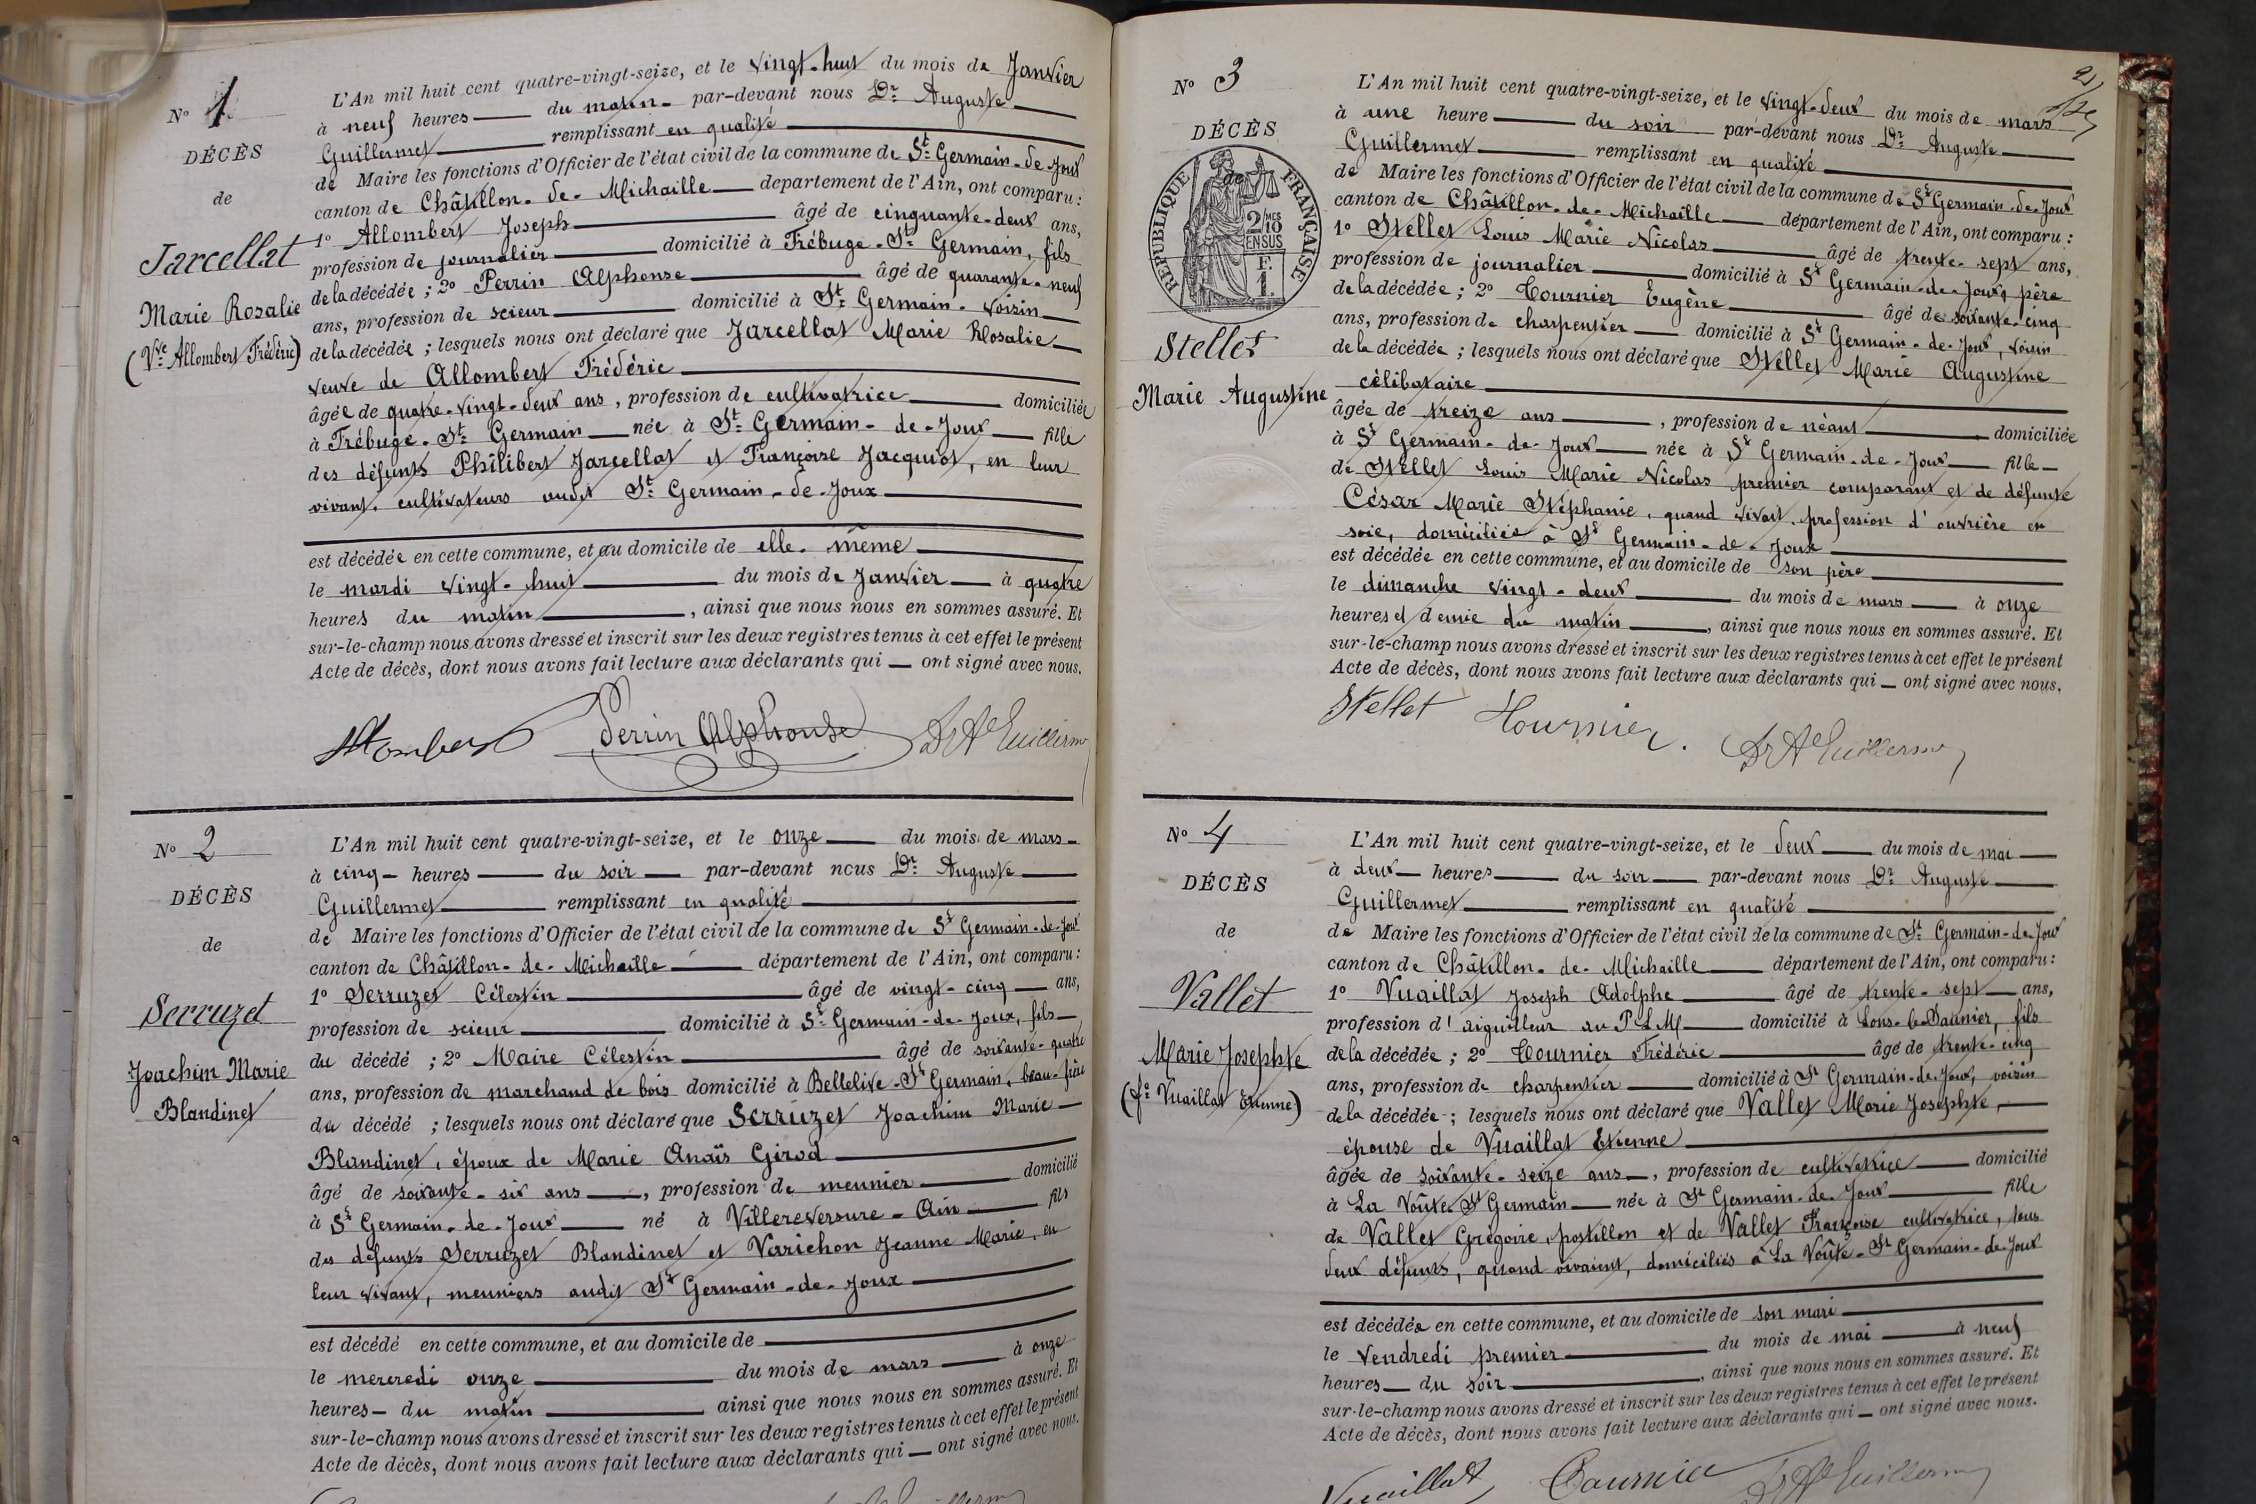 N° 1
DÉCÈS
de
Jarcellat
Marie Rosalie
(Vve Allombert Frédéric)
L'An mil huit cent quatre-vingt-seize, et le vingt-huit du mois de Janvier
à neuf heures du matin par-devant nous Dr Auguste
Guillermet remplissant en qualité
de Maire les fonctions d'Officier de l'état civil de la commune de St Germain-de-Joux
canton de Châtillon-de-Michaille département de l'Ain, ont comparu :
1° Allombert Joseph âgé de cinquante-deux ans,
profession de journalier domicilié à Trébuge-St Germain, fils
de la décédée ; 2° Perrin Alphonse âgé de quarante-neuf
ans, profession de scieur domicilié à St Germain-voisin
de la décédée ; lesquels nous ont déclaré que Jarcellat Marie Rosalie
veuve de Allombert Frédéric
âgée de quatre-vingt-deux ans, profession de cultivatrice domiciliée
à Trébuge-St Germain née à St Germain-de-Joux fille
des défunts Philibert Jarcellat et Françoise Jacquiot, en leur
vivant, cultivateurs audit St Germain-de-Joux
est décédée en cette commune, et au domicile de elle-même
le mardi vingt-huit du mois de Janvier à quatre
heures du matin, ainsi que nous nous en sommes assuré. Et
sur-le-champ nous avons dressé et inscrit sur les deux registres tenus à cet effet le présent
Acte de décès, dont nous avons fait lecture aux déclarants qui ont signé avec nous.
Allombert Perrin Alphonse Dr Ate Guillermet
N° 2
DÉCÈS
de
Serruzet
Joachim Marie
Blandinet
L'An mil huit cent quatre-vingt-seize, et le onze du mois de mars
à cinq heures du soir par-devant nous Dr Auguste
Guillermet remplissant en qualité
de Maire les fonctions d'Officier de l'état civil de la commune de St Germain-de-Joux
canton de Châtillon-de-Michaille département de l'Ain, ont comparu :
1° Serruzet Célestin âgé de vingt-cinq ans,
profession de scieur domicilié à St Germain-de-Joux, fils
du décédé ; 2° Maire Célestin âgé de soixante-quatre
ans, profession de marchand de bois domicilié à Bellelive-St Germain, beau-frère
du décédé ; lesquels nous ont déclaré que Serruzet Joachim Marie
Blandinet, époux de Marie Anaïs Girod
âgé de soixante-six ans, profession de meunier domicilié
à St Germain-de-Joux né à Villereversure-Ain fils
des défunts Serruzet Blandinet et Verrichon Jeanne Marie, en
leur vivant, meuniers audit St Germain-de-Joux
est décédé en cette commune, et au domicile de
le mercredi onze du mois de mars à onze
heures du matin ainsi que nous nous en sommes assuré. Et
sur-le-champ nous avons dressé et inscrit sur les deux registres tenus à cet effet le présent
Acte de décès, dont nous avons fait lecture aux déclarants qui ont signé avec nous.
N° 3
DÉCÈS
de
RÉPUBLIQUE FRANÇAISE
2/MES
10
EN SUS
F.
1.
Stellet
Marie Augustine
L'An mil huit cent quatre-vingt-seize, et le vingt-deux du mois de mars
à une heure du soir par-devant nous Dr Auguste
Guillermet remplissant en qualité
de Maire les fonctions d'Officier de l'état civil de la commune de St Germain-de-Joux
canton de Châtillon-de-Michaille département de l'Ain, ont comparu :
1° Stellet Louis Marie Nicolas âgé de trente-sept ans,
profession de journalier domicilié à St Germain-de-Joux, père
de la décédée ; 2° Tournier Eugène âgé de soixante-cinq
ans, profession de charpentier domicilié à St Germain-de-Joux, voisin
de la décédée ; lesquels nous ont déclaré que Stellet Marie Augustine
célibataire
âgée de treize ans, profession de néant domiciliée
à St Germain-de-Joux née à St Germain-de-Joux fille
de Stellet Louis Marie Nicolas premier comparant et de défunte
César Marie Stéphanie, quand vivait, profession d'ouvrière en
soie, domiciliée à St Germain-de-Joux
est décédée en cette commune, et au domicile de son père
le dimanche vingt-deux du mois de mars à onze
heures et demie du matin, ainsi que nous nous en sommes assuré. Et
sur-le-champ nous avons dressé et inscrit sur les deux registres tenus à cet effet le présent
Acte de décès, dont nous avons fait lecture aux déclarants qui ont signé avec nous.
Stellet Tournier. Dr Ate Guillermet
N° 4
DÉCÈS
de
Vallet
Marie Josephte
(fe Vuaillat Etienne)
L'An mil huit cent quatre-vingt-seize, et le deux du mois de mai
à deux heures du soir par-devant nous Dr Auguste
Guillermet remplissant en qualité
de Maire les fonctions d'Officier de l'état civil de la commune de St Germain-de-Joux
canton de Châtillon-de-Michaille département de l'Ain, ont comparu :
1° Vuaillat Joseph Adolphe âgé de trente-sept ans,
profession d'aiguilleur au P L M domicilié à Lons-le-Saunier, fils
de la décédée ; 2° Tournier Frédéric âgé de trente-cinq
ans, profession de charpentier domicilié à St Germain-de-Joux, voisin
de la décédée ; lesquels nous ont déclaré que Vallet Marie Josephte,
épouse de Vuaillat Etienne
âgée de soixante-seize ans, profession de cultivatrice domicilié
à La Voûte-St Germain née à St Germain-de-Joux fille
de Vallet Grégoire, postillon et de Vallet Françoise cultivatrice, tous
deux défunts, quand vivaient, domiciliés à La Voûte-St Germain-de-Joux
est décédée en cette commune, et au domicile de son mari
le vendredi premier du mois de mai à neuf
heures du soir, ainsi que nous nous en sommes assuré. Et
sur-le-champ nous avons dressé et inscrit sur les deux registres tenus à cet effet le présent
Acte de décès, dont nous avons fait lecture aux déclarants qui ont signé avec nous.
Vuaillat Tournier Dr Ate Guillermet